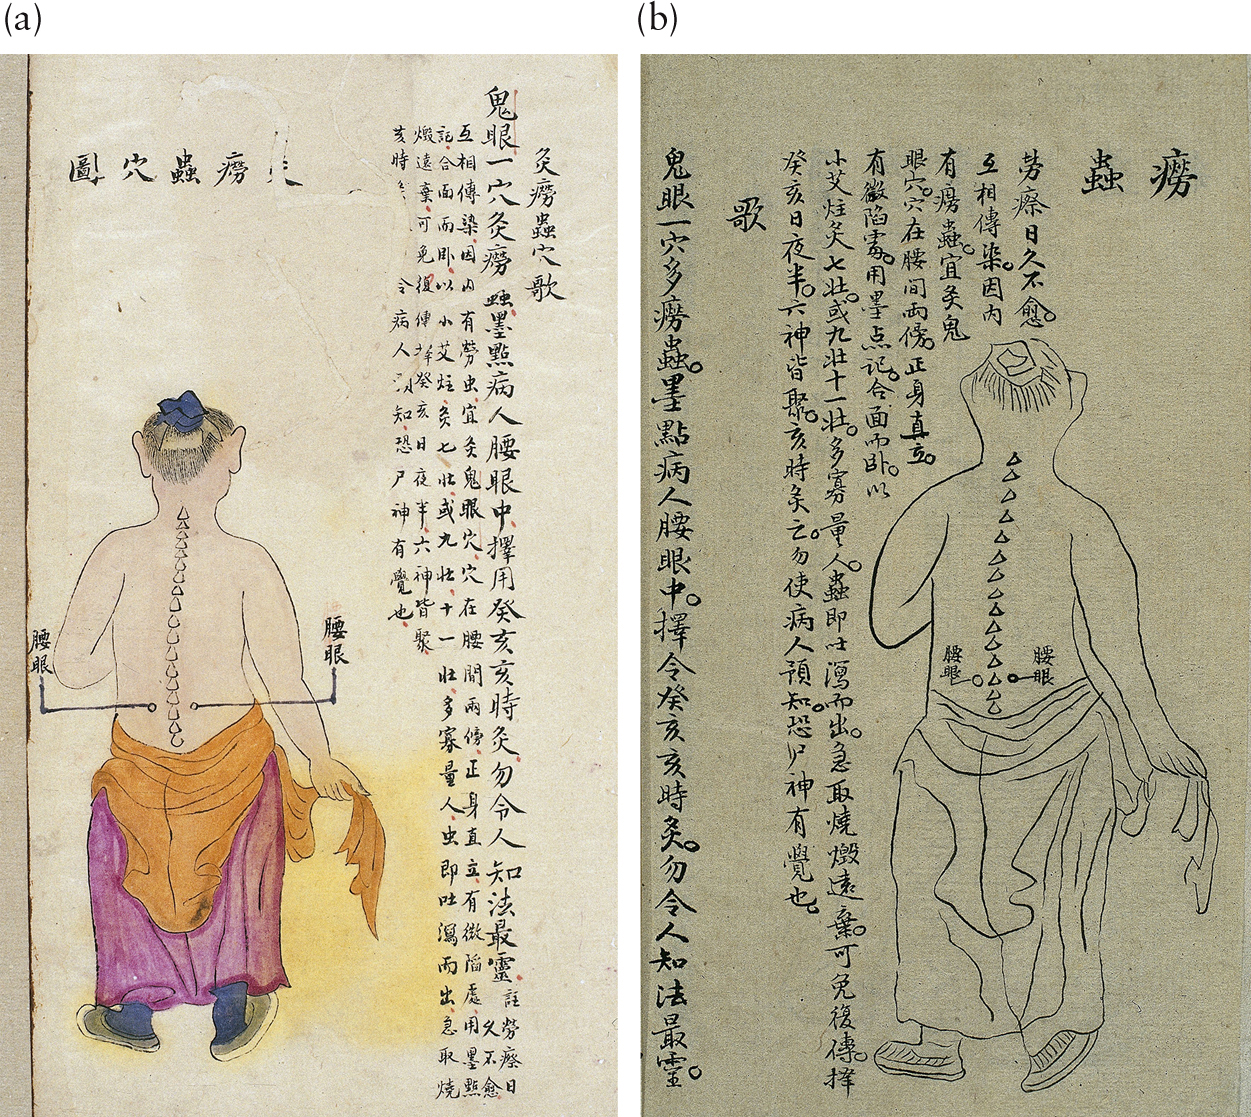 (a)
癆蟲穴圖
灸癆蟲穴歌
鬼眼一穴灸癆蟲墨點病人腰眼中擇用癸亥亥時灸勿令人知法最靈
註勞瘵日
久不愈
互相傳染因內有勞虫宜灸鬼眼穴穴在腰間兩傍正身直立有微陷處用墨點
記合面而卧以小艾炷灸七壯或九壯十一壯多寡量人虫即吐瀉而出急取燒
燬遠棄可免復傳擇癸亥日夜半六神皆聚
亥時 令病人 知恐尸神有覺也
腰眼
腰眼
(b)
癆蟲
勞瘵日久不愈。
互相傳染。因內
有癆蟲。宜灸鬼
眼穴。穴在腰間兩傍。正身直立。
有微陷處。用墨点記。合面而卧。以
小艾炷灸七壯。或九壯十一壯。多寡量人。蟲即吐瀉而出。急取燒燬遠棄。可免復傳。擇
癸亥日夜半。六神皆聚。亥時灸云。勿使病人預知。恐尸神有覺也。
歌
鬼眼一穴多癆蟲。墨點病人腰眼中。擇令癸亥亥時灸。勿令人知法最靈。
腰眼
腰眼